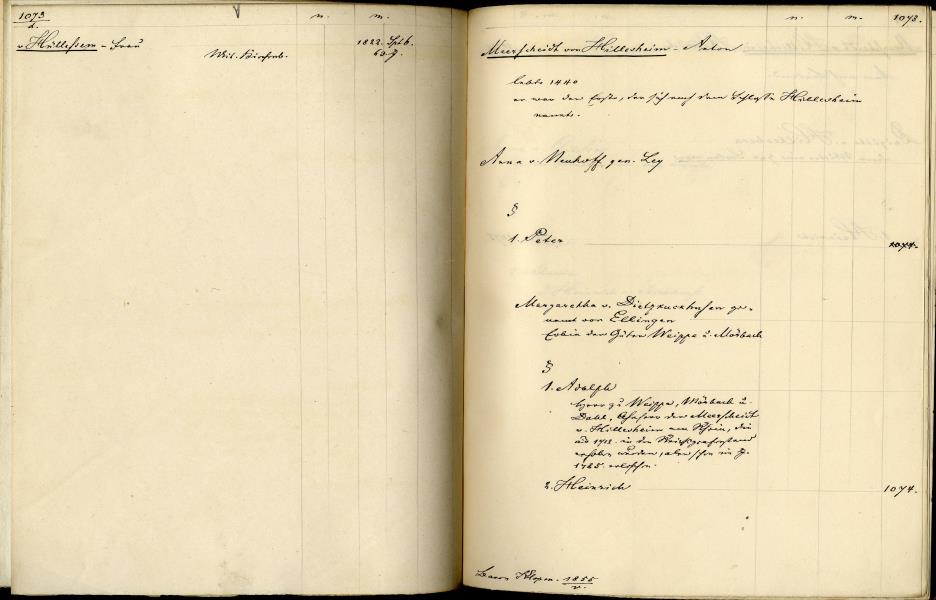 1073
v. Hüllessem - Frau
n. m.
1822. Sptb.
60 J.
n. m. 1073.
Meerscheidt von Hillesheim - Anton
lebte 1440
er war der Erste, der sich nach dem Schlosse Hillesheim
nannte.
Anna v. Neuhoff gen. Ley
§
1. Peter 1074.
Margaretha v. ge-
nannt von Ellingen
Erbin der Güter Weippe u. Mösbach
§
1. Adolph
Herr zu Weippe, Mösbach u.
Dahl, Ahnherr der Meerscheidt
v. Hillesheim am Rhein, die
1712. in den Reichsgrafenstand
erhoben wurden, aber schon im J.
1785. erloschen.
2. Heinrich 1074.
1855